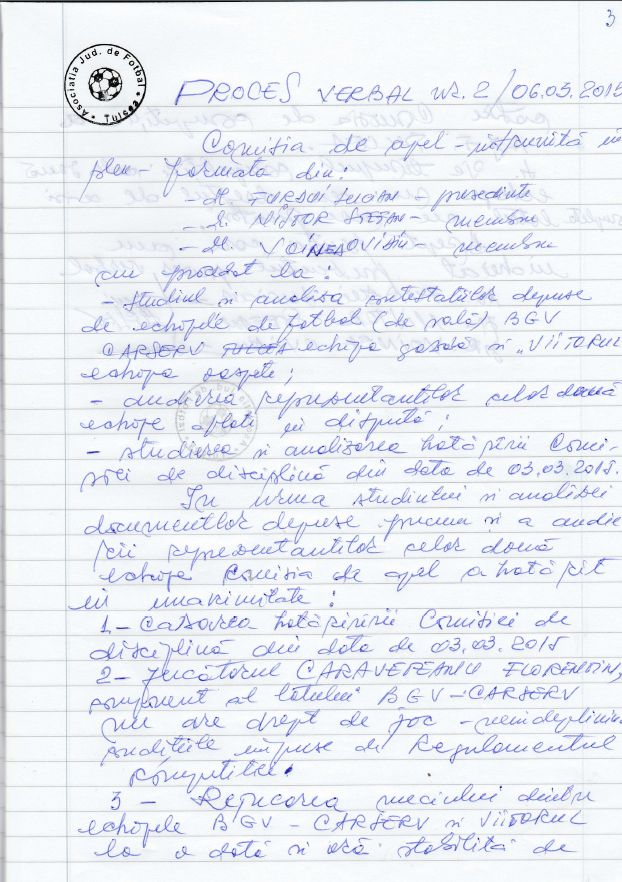 3
Asociatia Jud. de Fotbal
Tulcea
PROCES VERBAL nr. 2/06.03.2015
Comisia de apel - intrunită în
plen - formata din:
- dl. LUCIAN - presedinte
- dl. NISTOR STEFAN - membru
- dl. VOINEA OVIDIU - membru
au procedat la:
- studiul si analiza contestatiilor depuse
de echipele de fotbal (de sală) BGV
CARSERV TULCEA echipa gazdă si "VIITORUL
echipa oaspete;
- audierea reprezentantilor celor două
echipe aflate in dispută;
- studierea si analizarea hotărîrii Comi-
siei de disciplină din data de 03.03.2015.
In urma studiului si analizei
documentelor depuse precum si a audie
rii reprezentantilor celor două
echipe Comisia de apel a hotărît
in unanimitate:
1- Casarea hotărîririi Comisiei de
disciplină din data de 03.03.2015
2- Jucătorul FLORENTIN,
component al lotului BGV-CARSERV
nu are drept de joc - neindeplinind
conditiile impuse de Regulamentul
Competitiei.
3 - Rejucarea meciului dintre
echipele BGV - CARSERV si VIITORUL
la o dată si oră stabilită de